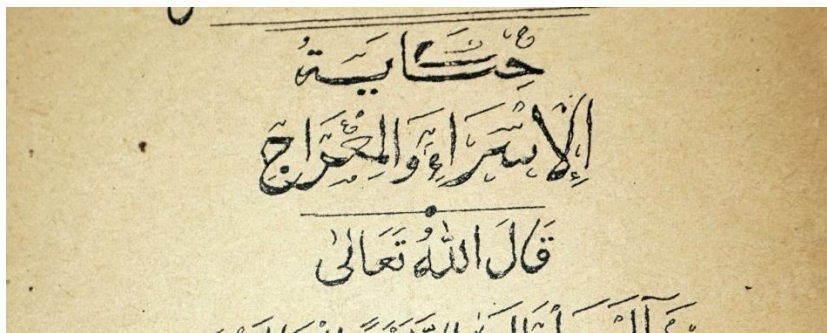 حِكَايَةُ
الْإِسْرَاءِ وَالْمِعْرَاجِ
قَالَ اللهُ تَعَالىٰ